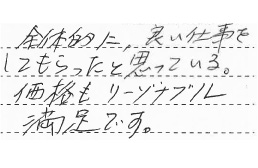 全体的に、良い仕事を
してもらったと思っている。
価格もリーゾナブル
満足です。